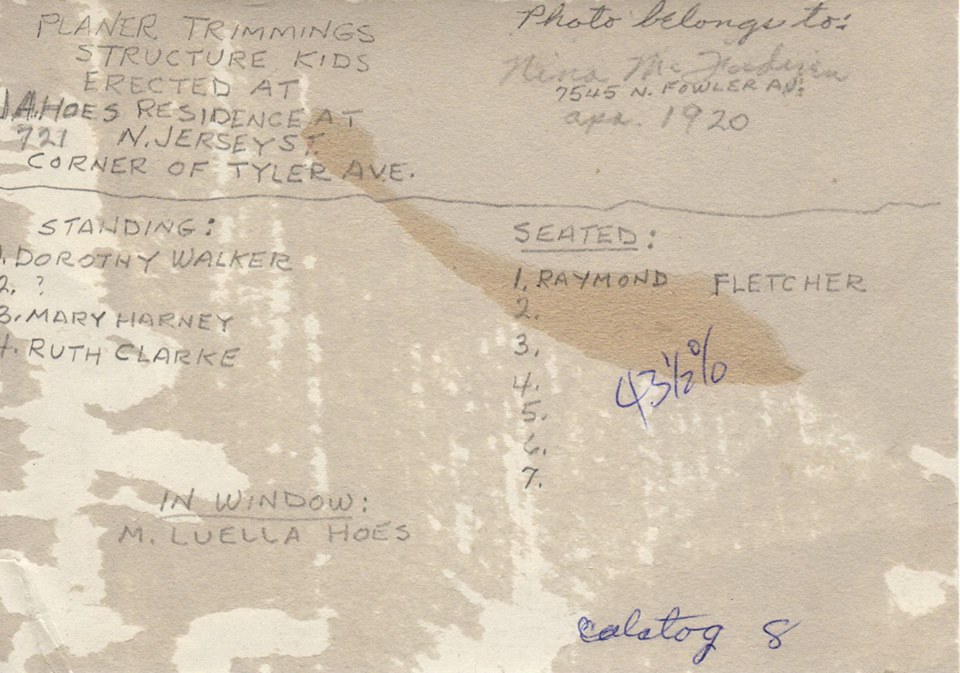 PLANER TRIMMINGS
STRUCTURE KIDS
ERECTED AT
J.A. HOES RESIDENCE AT
721 N. JERSEY ST.
CORNER OF TYLER AVE.
Photo belongs to:
Nina Mc
7545 N. FOWLER AV.
1920
STANDING:
1. DOROTHY WALKER
2. ?
3. MARY HARNEY
4. RUTH CLARKE
SEATED:
1. RAYMOND FLETCHER
2.
3.
4.
5.
6.
7.
43 1/2 %
IN WINDOW:
M. LUELLA HOES
calstog 8